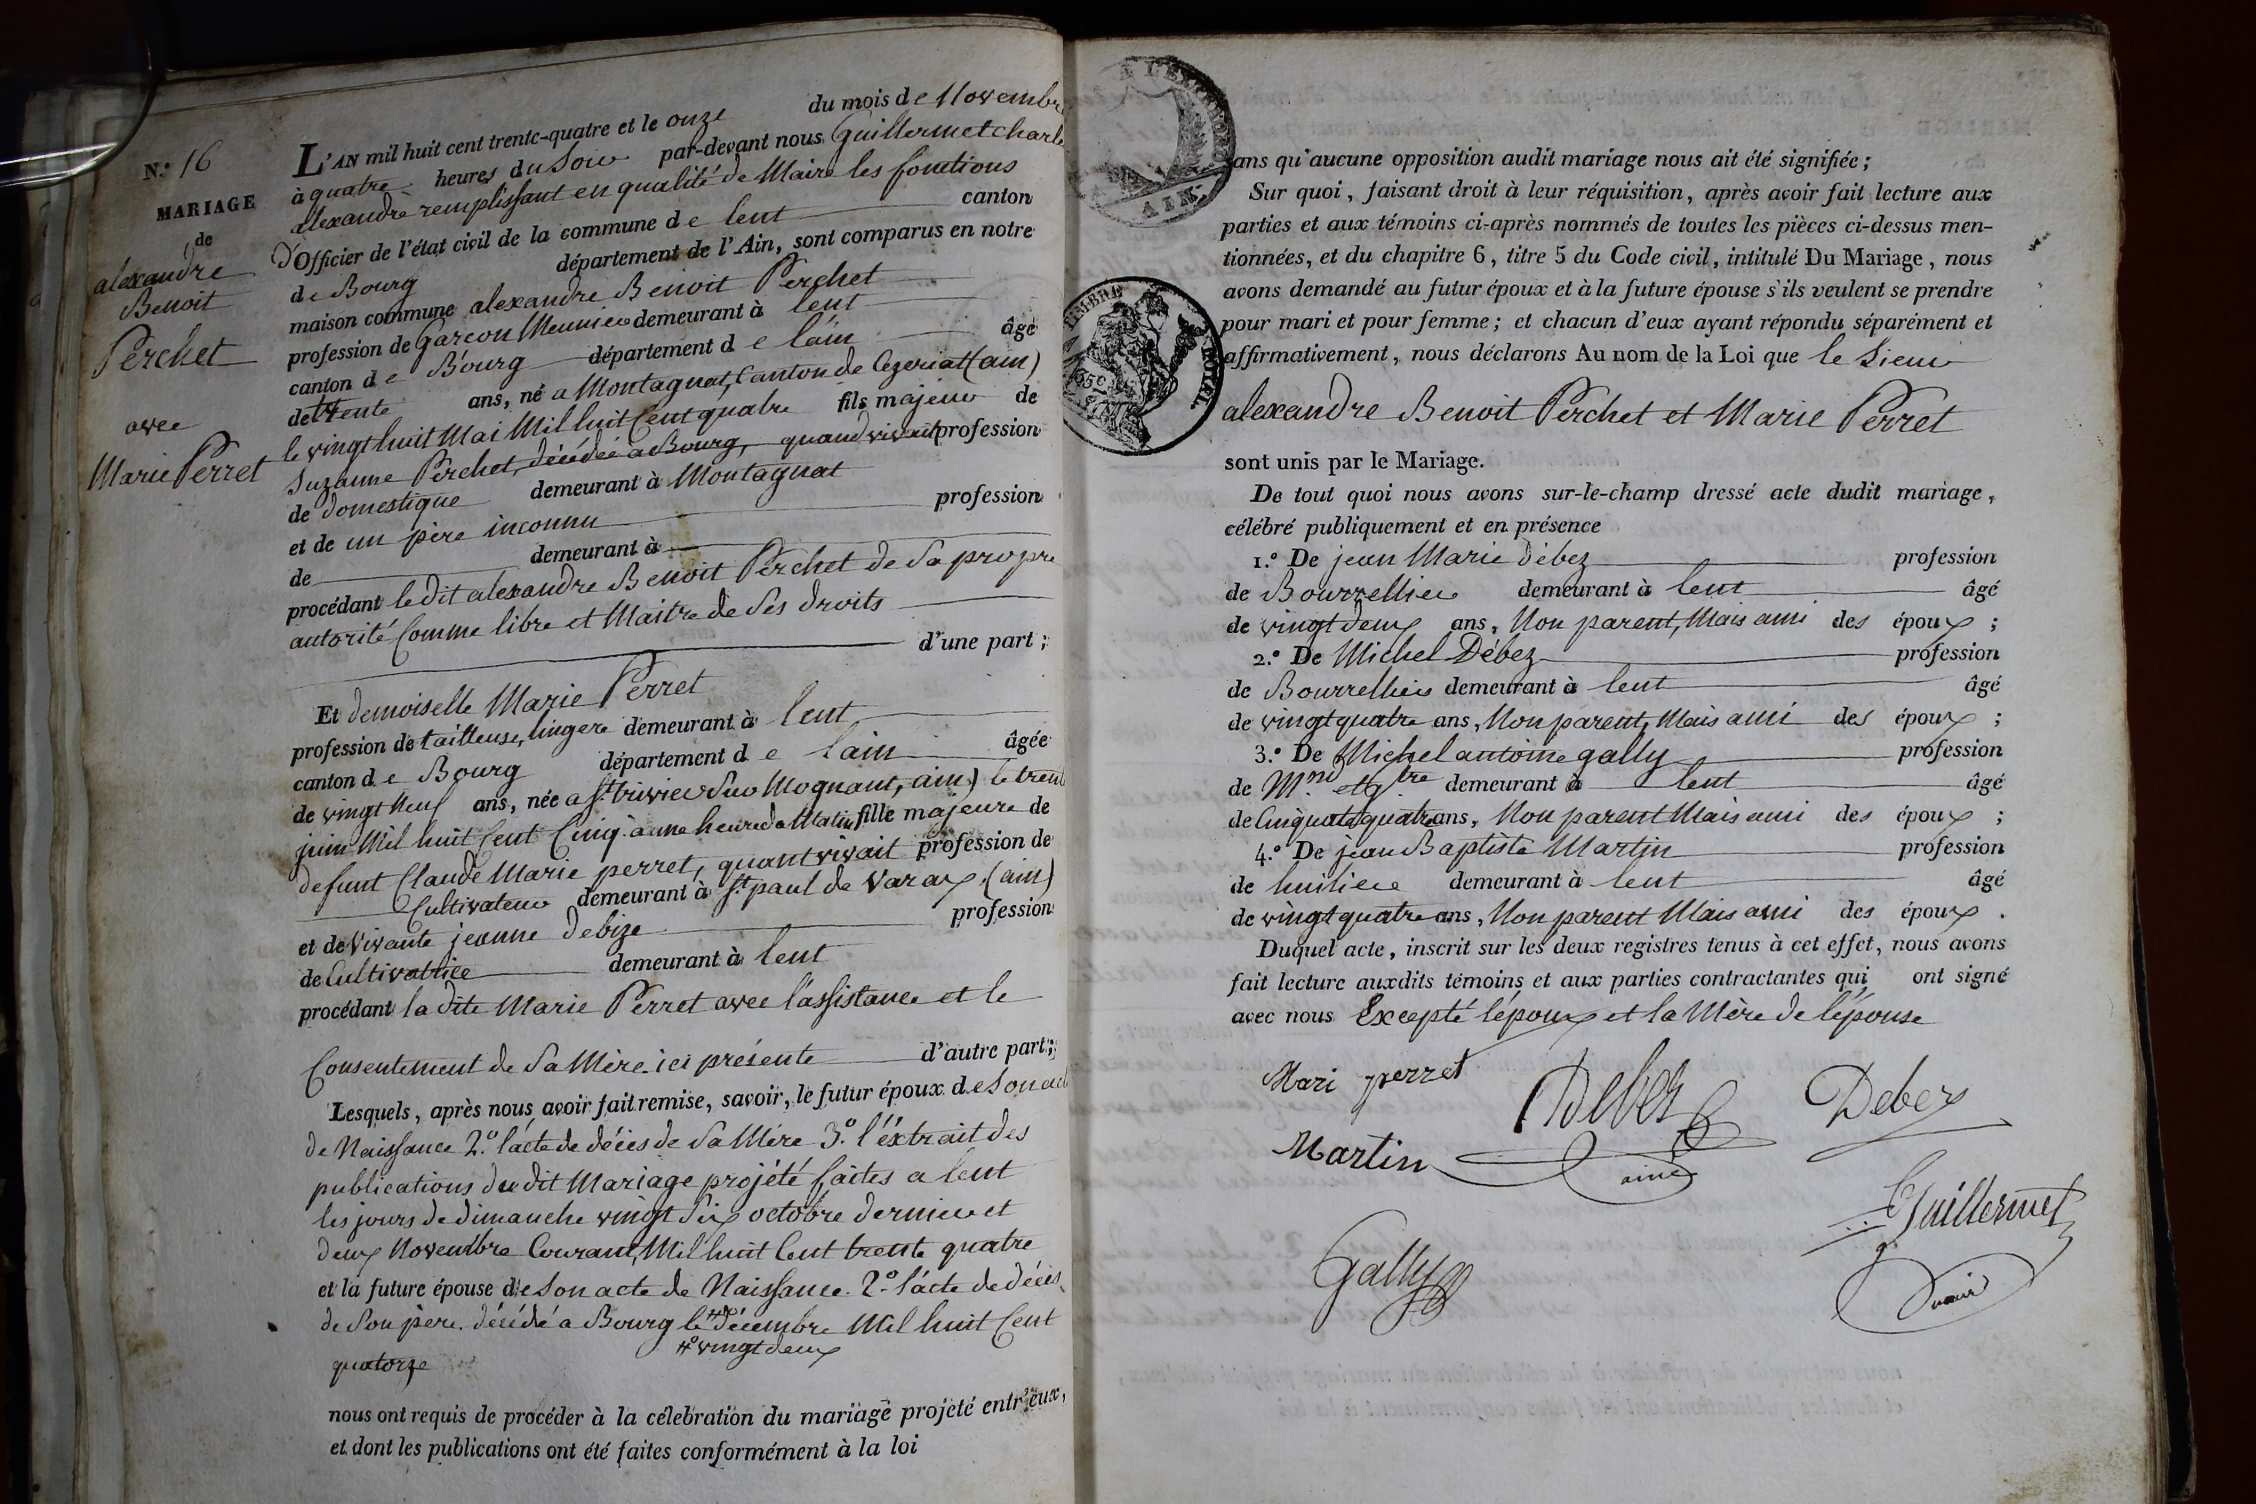 N.º 16
MARIAGE
de
alexandre
Benoit
Perchet
avec
Marie Perret
L'AN mil huit cent trente-quatre et le onze du mois de Novembre
à quatre heures du Soir par-devant nous Guillermet charle
alexandre remplissant en qualité de Maire les fonctions
d'Officier de l'état civil de la commune de lent canton
de Bourg département de l'Ain, sont comparus en notre
maison commune alexandre Benoit Perchet
profession de Garcon Meunier demeurant à lent
canton de Bourg département de l'ain âgé
de trente ans, né a Montagnat, Canton de Cezeriat (ain)
le vingt huit Mai Mil huit Cent quatre fils majeur de
Suzanne Perchet, décédée a Bourg, quand vivait profession
de domestique demeurant à Montagnat
et de un père inconnu profession
de demeurant à
procédant le dit alexandre Benoit Perchet de Sa propre
autorité Comme libre et Maitre de Ses droits
d'une part ;
Et demoiselle Marie Perret
profession de tailleuse, lingere demeurant à lent
canton de Bourg département de l'ain âgée
de vingt Neuf ans, née a St. trivier Sur Mognant, ain) le trente
juin Mil huit Cent Cinq à une heure de Matin fille majeure de
defunt Claude Marie perret, quant vivait profession de
Cultivateur demeurant à St. paul de Varax, (ain)
et de Vivante jeanne Debize profession
de Cultivatrice demeurant à lent
procédant la dite Marie Perret avec l'assistance et le
Consentement de Sa Mère ici présente d'autre part ;
Lesquels, après nous avoir fait remise, savoir, le futur époux de Son acte
de Naissance 2.º l'acte de décès de Sa Mère 3.º l'éxtrait des
publications du dit Mariage projété faites a lent
les jours de dimanche vingt Six octobre dernier et
deux Novembre Courant, Mil huit Cent trente quatre
et la future épouse de Son acte de Naissance 2.º l'acte de décès
de Son père. décédé a Bourg le décembre Mil huit Cent
vingt deux
quatorze
nous ont requis de procéder à la célebration du mariage projeté entr'eux,
et dont les publications ont été faites conformément à la loi
AIN
TIMBRE ROYAL
35 c
sans qu'aucune opposition audit mariage nous ait été signifiée ;
Sur quoi, faisant droit à leur réquisition, après avoir fait lecture aux
parties et aux témoins ci-après nommés de toutes les pièces ci-dessus men-
tionnées, et du chapitre 6, titre 5 du Code civil, intitulé Du Mariage, nous
avons demandé au futur époux et à la future épouse s'ils veulent se prendre
pour mari et pour femme ; et chacun d'eux ayant répondu séparément et
affirmativement, nous déclarons Au nom de la Loi que le Sieur
alexandre Benoit Perchet et Marie Perret
sont unis par le Mariage.
De tout quoi nous avons sur-le-champ dressé acte dudit mariage,
célébré publiquement et en présence
1.º De jean Marie Débez profession
de Bourrellier demeurant à lent âgé
de vingt deux ans, Non parent, Mais ami des époux ;
2.º De Michel Débez profession
de Bourrellier demeurant à lent âgé
de vingt quatre ans, Non parent, Mais ami des époux ;
3.º De Michel antoine gally profession
de M.nd et g.tre demeurant à lent âgé
de Cinquate quatre ans, Non parent Mais ami des époux ;
4.º De jean Baptiste Martin profession
de huilier demeurant à lent âgé
de vingt quatre ans, Non parent Mais ami des époux .
Duquel acte, inscrit sur les deux registres tenus à cet effet, nous avons
fait lecture auxdits témoins et aux parties contractantes qui ont signé
avec nous Excepté l'époux et la Mère de l'épouse
Mari perret Debez Debez
Martin ainé
Guillermet
Gally maire